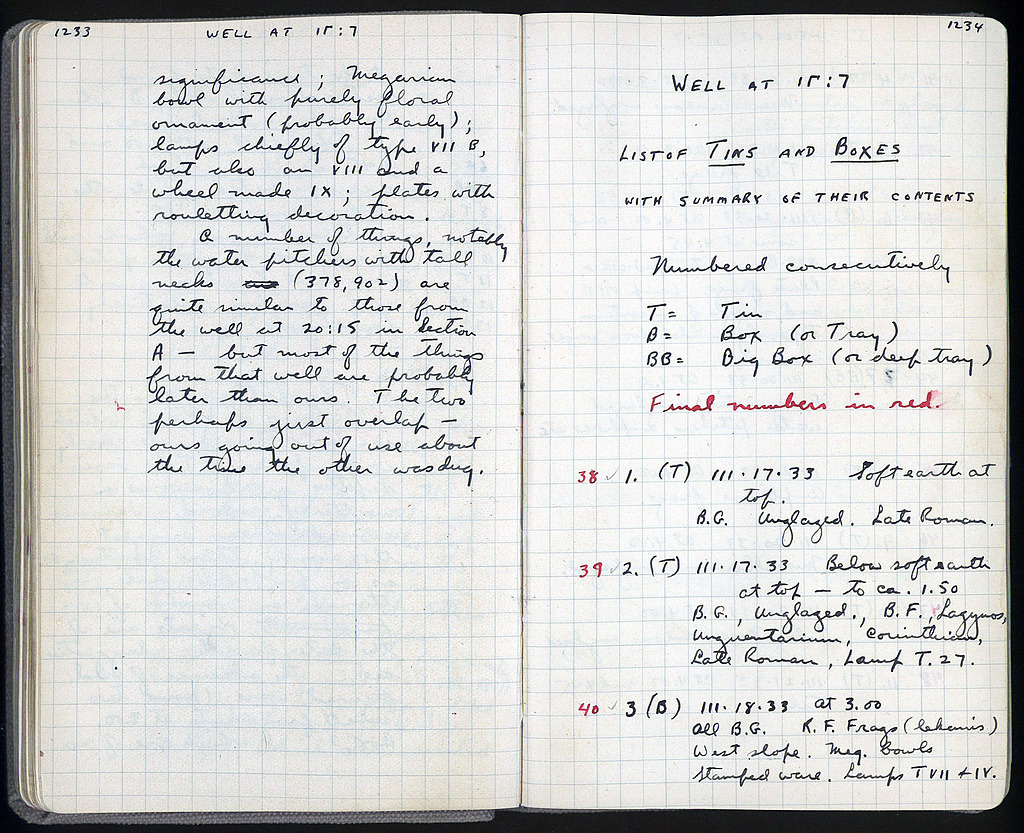 1233
WELL AT 1Γ:7
significance; Megarian
bowl with purely floral
ornament (probably early);
lamps chiefly of type VII B,
but also an VIII and a
wheel made IX; plates with
rouletting decoration.
A number of things, notably
the water pitchers with tall
necks (378, 902) are
quite similar to those from
the well at 20:15 in Section
A – but most of the things
from that well are probably
later than ours. The two
perhaps just overlap –
ours going out of use about
the time the other was dug.
1234
WELL AT 1Γ:7
LIST OF TINS AND BOXES
WITH SUMMARY OF THEIR CONTENTS
Numbered consecutively
T = Tin
B = Box (or Tray)
BB = Big Box (or deep tray)
Final numbers in red.
38 ✓ 1. (T) III·17·33 Soft earth at
top.
B.G. Unglazed. Late Roman.
39 ✓ 2. (T) III·17·33 Below soft earth
at top – to ca. 1.50
B.G., Unglazed., B.F., Lagynos,
Unguentarium, Corinthian,
Late Roman, Lamp T. 27.
40 ✓ 3 (B) III·18·33 at 3.00
all B.G. R.F. Frags (lekanis)
West slope. Meg. bowls
Stamped ware. Lamps T VII + IV.